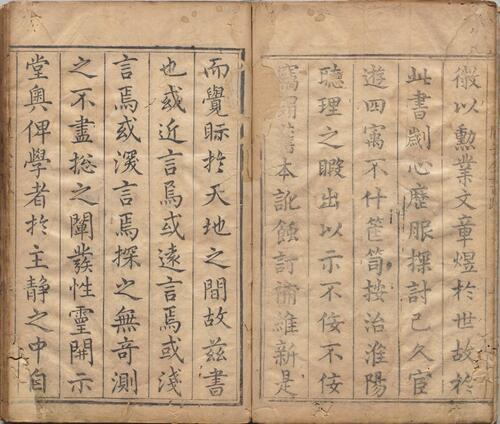 儆以勲業文章煜於世故於
此書劌心歷服探討已久宦
遊四寓不什笸笥按治淮陽
聽理之暇出以示不佞不佞
竊
本訛蝕訂補維新是
而覺眎扵天地之間故兹書
也或近言焉或遠言焉或淺
言焉或深言焉探之無竒測
之不盡揔之闡發性靈開示
堂奧俾學者扵主靜之中自